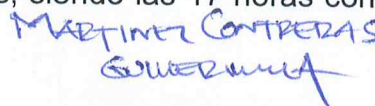 , siendo las 17 horas con
MARTINEZ CONTRERAS
GUILLERMINA